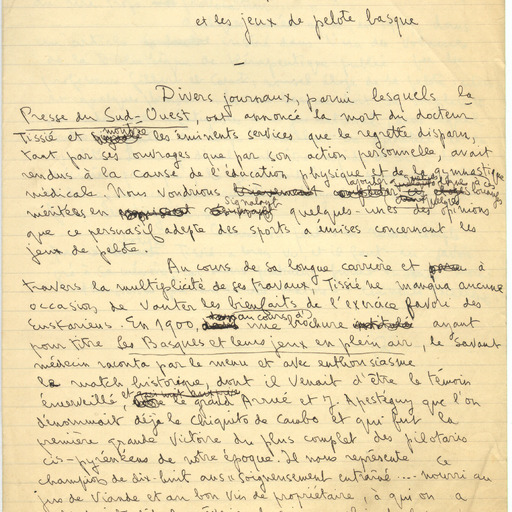 et les jeux de pelote basque
Divers journaux, parmi lesquels la
Presse du Sud-Ouest, ont annoncé la mort du docteur
Tissié et montré les éminents services que le regretté disparu,
tant par ses ouvrages que par son action personnelle, avait
rendus à la cause de l'éducation physique et de la gymnastique
médicale. Nous voudrions ajouter à ces
méritées en signalant quelques-unes des opinions
que ce persuasif adepte des sports a émises concernant les
jeux de pelote.
Au cours de sa longue carrière et à
travers la multiplicité de ses travaux, Tissié ne manqua aucune
occasion de vanter les bienfaits de l'exercice favori des
Euskariens. En 1900, au cours d'une brochure ayant
pour titre les Basques et leurs jeux en plein air, le savant
médecin raconta par le menu et avec enthousiasme
le match historique, dont il venait d'être le témoin
émerveillé, et le grand Arrué et J. Apesteguy que l'on
dénommait déjà le Chiquito de Cambo et qui fut la
première grande victoire du plus complet des pilotaris
cis-pyrénéens de notre époque. Il nous représente ce
champion de dix-huit ans "soigneusement entraîné .... nourri au
jus de viande et au bon vin de propriétaire, à qui on a